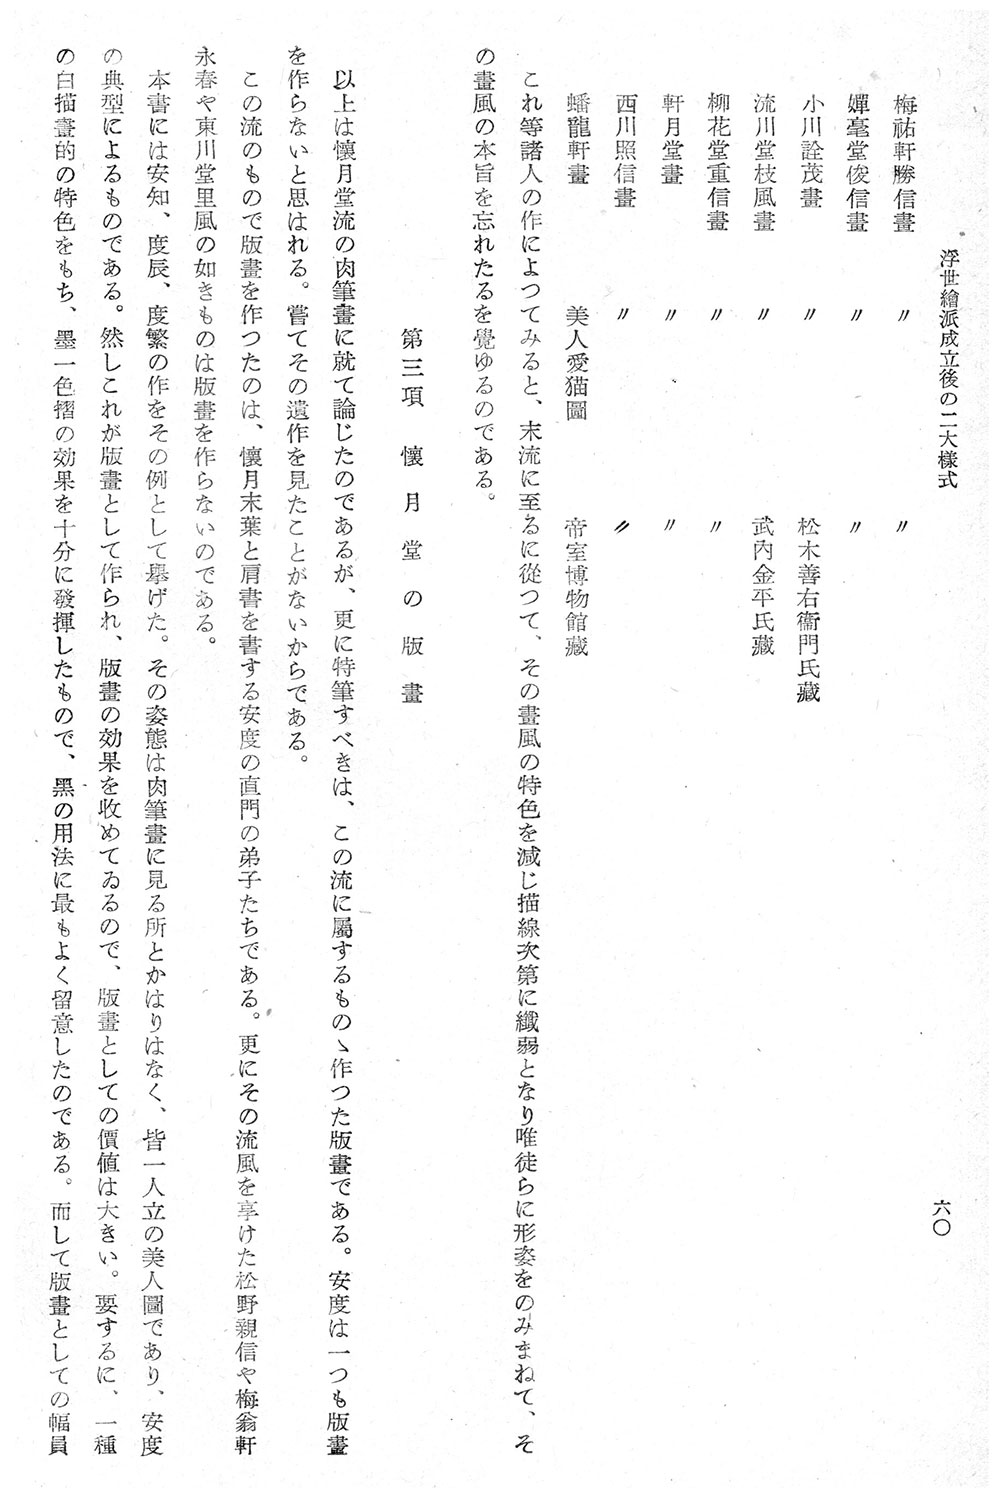 浮世繪派成立後の二大樣式
六〇
梅祐軒勝信畫 〃 〃
嬋毫堂俊信畫 〃 〃
小川詮茂畫 〃 松木善右衞門氏藏
流川堂枝風畫 〃 武內金平氏藏
柳花堂重信畫 〃 〃
軒月堂畫 〃 〃
西川照信畫 〃 〃
蟠龍軒畫 美人愛猫圖 帝室博物館藏
これ等諸人の作によつてみると、末流に至るに從つて、その畫風の特色を減じ描線次第に纖弱となり唯徒らに形姿をのみまねて、そ
の畫風の本旨を忘れたるを覺ゆるのである。
第三項 懷月堂の版畫
以上は懷月堂流の肉筆畫に就て論じたのであるが、更に特筆すべきは、この流に屬するものゝ作つた版畫である。安度は一つも版畫
を作らないと思はれる。嘗てその遺作を見たことがないからである。
この流のもので版畫を作つたのは、懷月末葉と肩書を書する安度の直門の弟子たちである。更にその流風を享けた松野親信や梅翁軒
永春や東川堂里風の如きものは版畫を作らないのである。
本書には安知、度辰、度繁の作をその例として擧げた。その姿態は肉筆畫に見る所とかはりはなく、皆一人立の美人圖であり、安度
の典型によるものである。然しこれが版畫として作られ、版畫の効果を收めてゐるので、版畫としての價値は大きい。要するに、一種
の白描畫的の特色をもち、墨一色摺の効果を十分に發揮したもので、黑の用法に最もよく留意したのである。而して版畫としての幅員